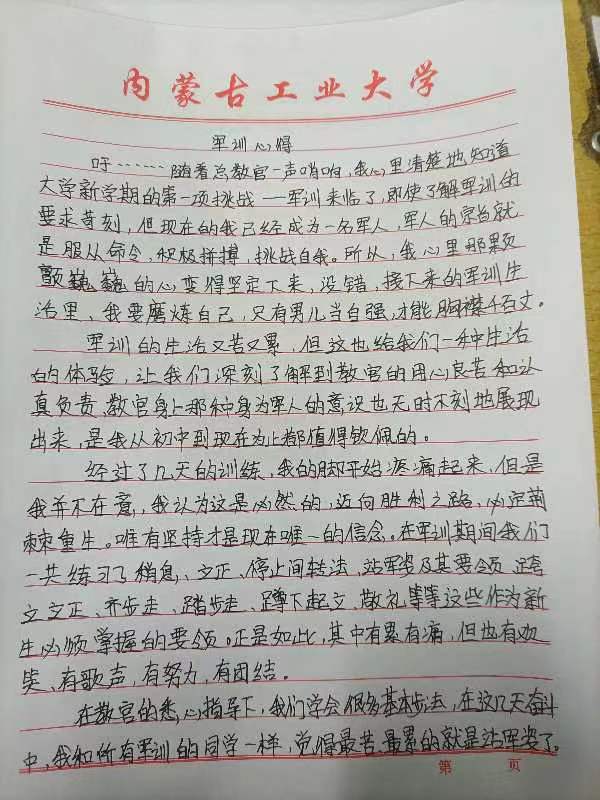 内蒙古工业大学
军训心得
吁……随着总教官一声哨响，我心里清楚地知道
大学新学期的第一项挑战——军训来临了，即使了解军训的
要求苛刻，但现在的我已经成为一名军人，军人的宗旨就
是服从命令，积极拼搏，挑战自我。所以，我心里那颗
颤巍巍的心变得坚定下来，没错，接下来的军训生
活里，我要磨炼自己，只有男儿当自强，才能胸襟千百丈。
军训的生活又苦又累，但这也给我们一种生活
的体验，让我们深刻了解到教官的用心良苦和认
真负责，教官身上那种身为军人的意识也无时不刻地展现
出来，是我从初中到现在为止都值得钦佩的。
经过了几天的训练，我的脚开始疼痛起来，但是
我并不在意，我认为这是必然的，迈向胜利之路，必定荆
棘重生。唯有坚持才是现在唯一的信念。在军训期间我们
一共练习了稍息、立正、停止间转法，站军姿及其要领，跨
立立正、齐步走、踏步走、蹲下起立、敬礼等等这些作为新
生必须掌握的要领。正是如此，其中有累有痛，但也有欢
笑、有歌声，有努力，有团结。
在教官的悉心指导下，我们学会很多基本步法，在这几天奋斗
中，我和所有军训的同学一样，觉得最苦、最累的就是站军姿了。
第 页